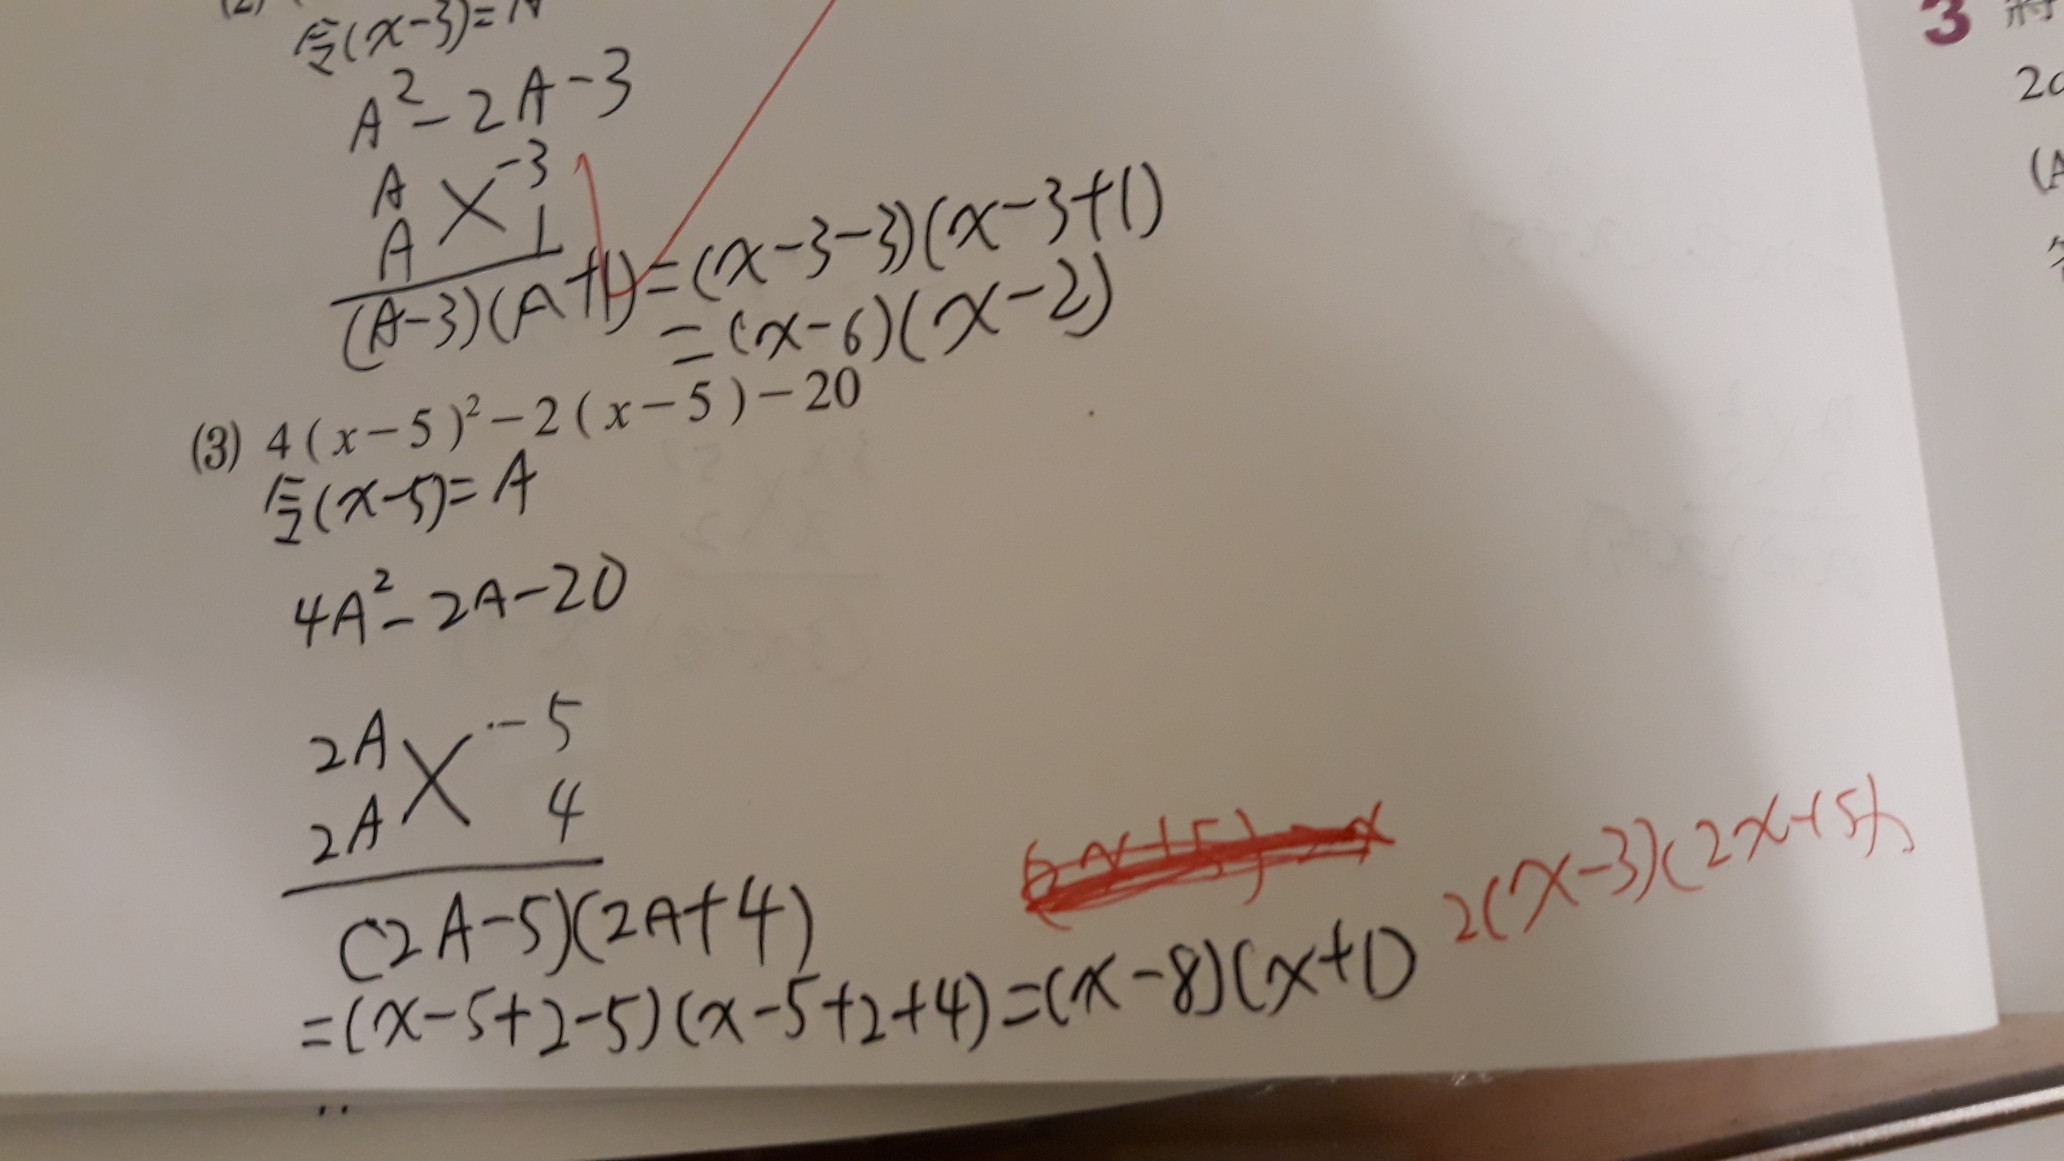 (2)
令(x-3)=A
A²-2A-3
A -3
A 1
(A-3)(A+1)=(x-3-3)(x-3+1)
=(x-6)(x-2)
(3) 4(x-5)²-2(x-5)-20
令(x-5)=A
4A²-2A-20
2A -5
2A 4
(2A-5)(2A+4)
=(x-5+2-5)(x-5+2+4)=(x-8)(x+1)
2(x-3)(2x-15)
3